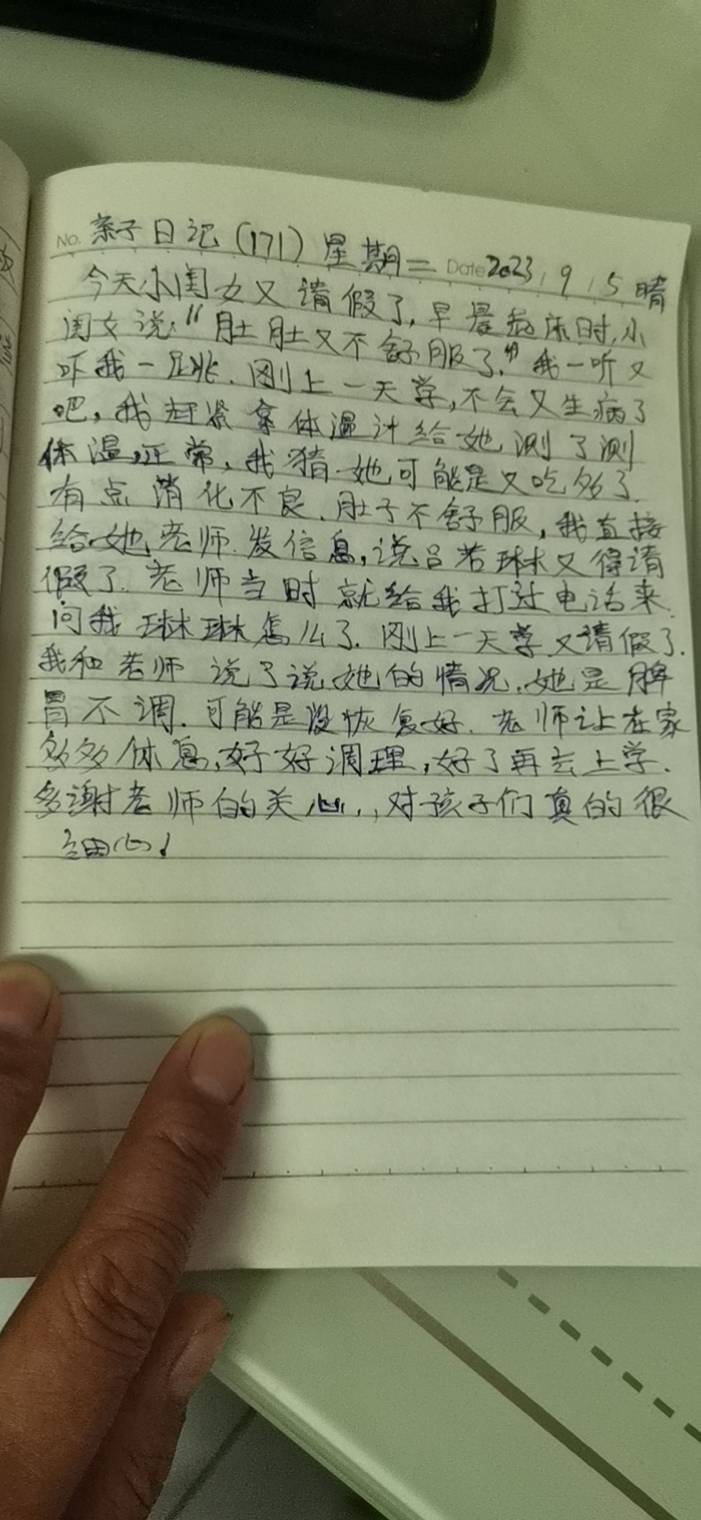 No. 亲子日记(171) 星期二 Date 2023.9.5 晴
今天小闺女又请假了,早晨起床时,小
闺女说:"肚肚又不舒服了。"我一听又
吓我一跳.刚上一天学,不会又生病了
吧,我赶紧拿体温计给她测了测
体温,正常,我猜她可能是又吃多了.
有点消化不良.肚子不舒服,我直接
给她老师发信息,说吕若琳又得请
假了.老师当时就给我打过电话来.
问我琳琳怎么了.刚上一天学又请假了.
我和老师说了说她的情况.她是脾
胃不调.可能是没恢复好.老师让在家
多多休息,好好调理,好了再去上学.
多谢老师的关心,,对孩子们真的很
细心!